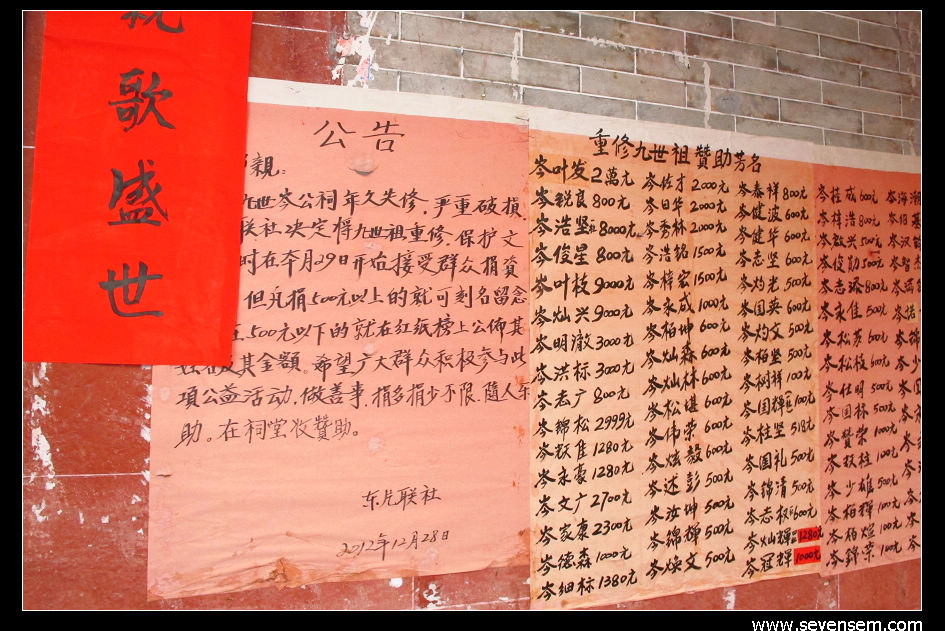 歌盛世
公告
親。
九世岑公祠年久失修，严重破損
联社决定將九世祖重修，保护文
时在本月29日开始接受群众捐資
但凡捐500元以上的就可刻名留念
500元以下的就在红纸榜上公佈其
及其金額。希望广大群众积极参与此
項公益活动，做善事，捐多捐少不限，隨人乐
助。在祠堂收贊助。
东片联社
2012年12月28日
重修九世祖贊助芳名
岑叶发2萬元
岑锐良800元
岑浩坚8000元
岑俊星800元
岑叶枝9000元
岑灿兴9000元
岑明澈3000元
岑洪标3000元
岑志广800元
岑锦松2999元
岑跃進1280元
岑永豪1280元
岑文广2700元
岑家康2300元
岑德森1000元
岑细标1380元
岑佐才2000元
岑日华2000元
岑秀林2000元
岑浩銘1500元
岑梓宏1500元
岑永成1000元
岑柏坤600元
岑灿森600元
岑灿林600元
岑松堪600元
岑伟荣600元
岑炫毅600元
岑述彭500元
岑汝坤500元
岑錦輝500元
岑焕文500元
岑泰祥800元
岑健波600元
岑健华600元
岑志坚600元
岑灼光500元
岑国英600元
岑灼文500元
岑栢坚500元
岑树祥100元
岑国輝100元
岑桂坚518元
岑国礼500元
岑錦清500元
岑志权600元
岑灿輝1280元
岑冠輝1000元
岑桂成600元
岑梓浩800元
岑啟兴500元
岑俊勛500元
岑志添800元
岑永佳500元
岑松苏600元
岑松枝600元
岑仕明500元
岑国林500元
岑贊荣100元
岑权桂100元
岑少雄500元
岑栢輝100元
岑栢煊100元
岑錦荣100元
www.sevensem.com